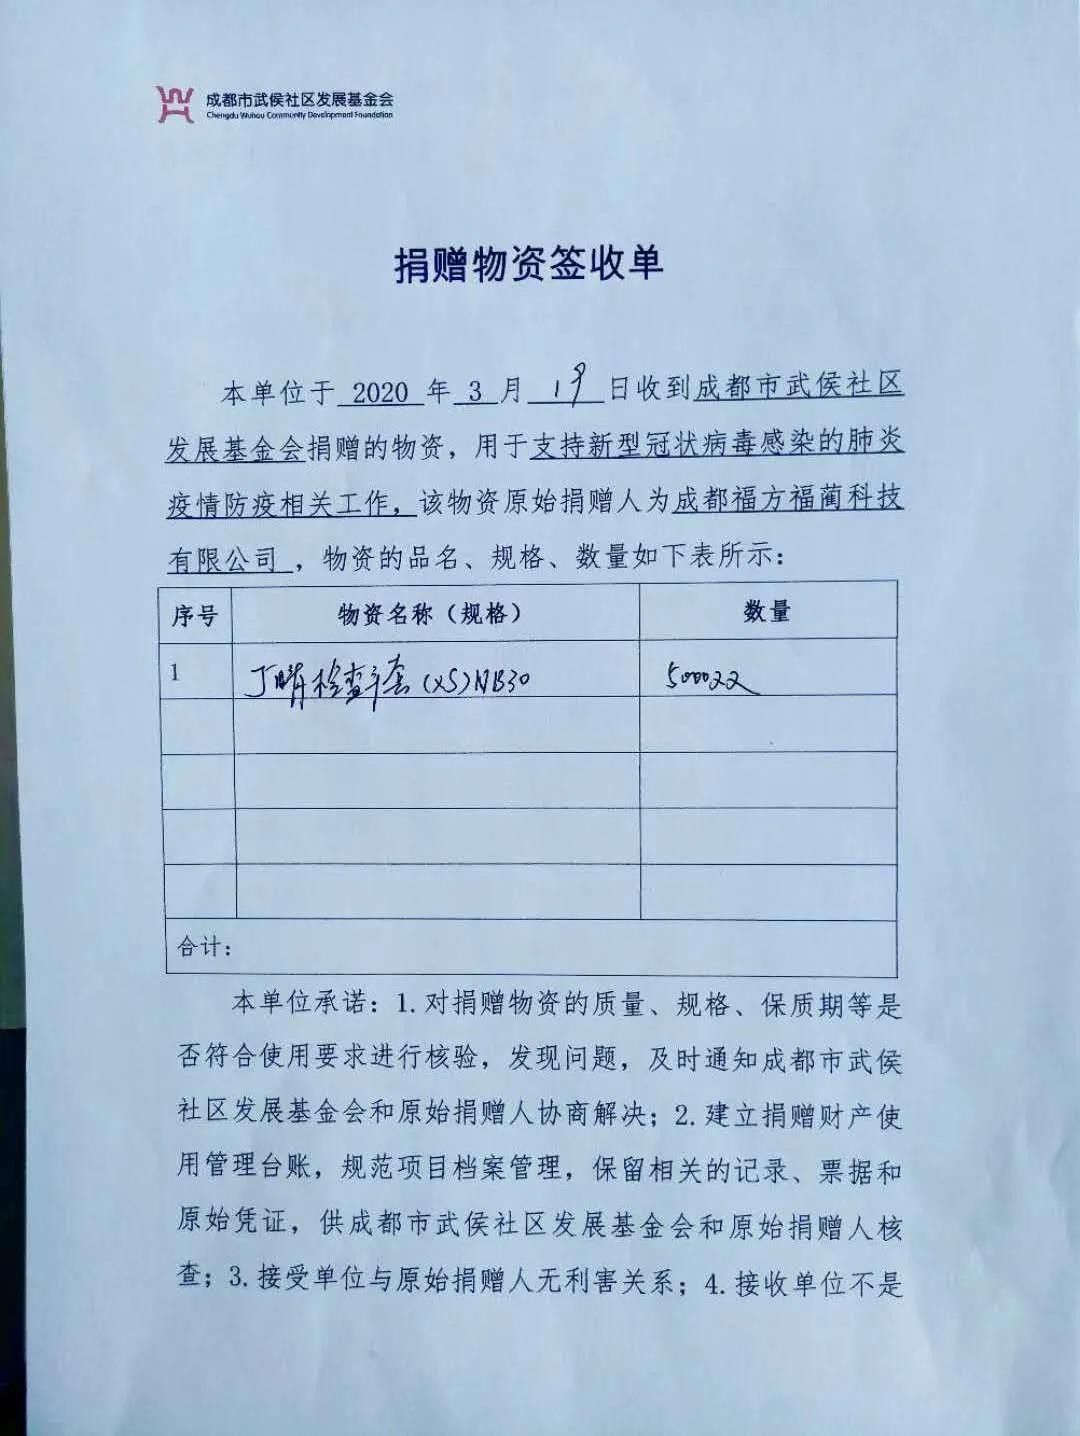 成都市武侯社区发展基金会
Chengdu Wuhou Community Development Foundation
捐赠物资签收单
本单位于 2020 年 3 月 19 日收到成都市武侯社区
发展基金会捐赠的物资，用于支持新型冠状病毒感染的肺炎
疫情防疫相关工作，该物资原始捐赠人为成都福方福蔺科技
有限公司，物资的品名、规格、数量如下表所示：
序号 物资名称（规格） 数量
1 丁晴检查手套(XS)NB30 50000双
合计：
本单位承诺：1.对捐赠物资的质量、规格、保质期等是
否符合使用要求进行核验，发现问题，及时通知成都市武侯
社区发展基金会和原始捐赠人协商解决；2.建立捐赠财产使
用管理台账，规范项目档案管理，保留相关的记录、票据和
原始凭证，供成都市武侯社区发展基金会和原始捐赠人核
查；3.接受单位与原始捐赠人无利害关系；4.接收单位不是